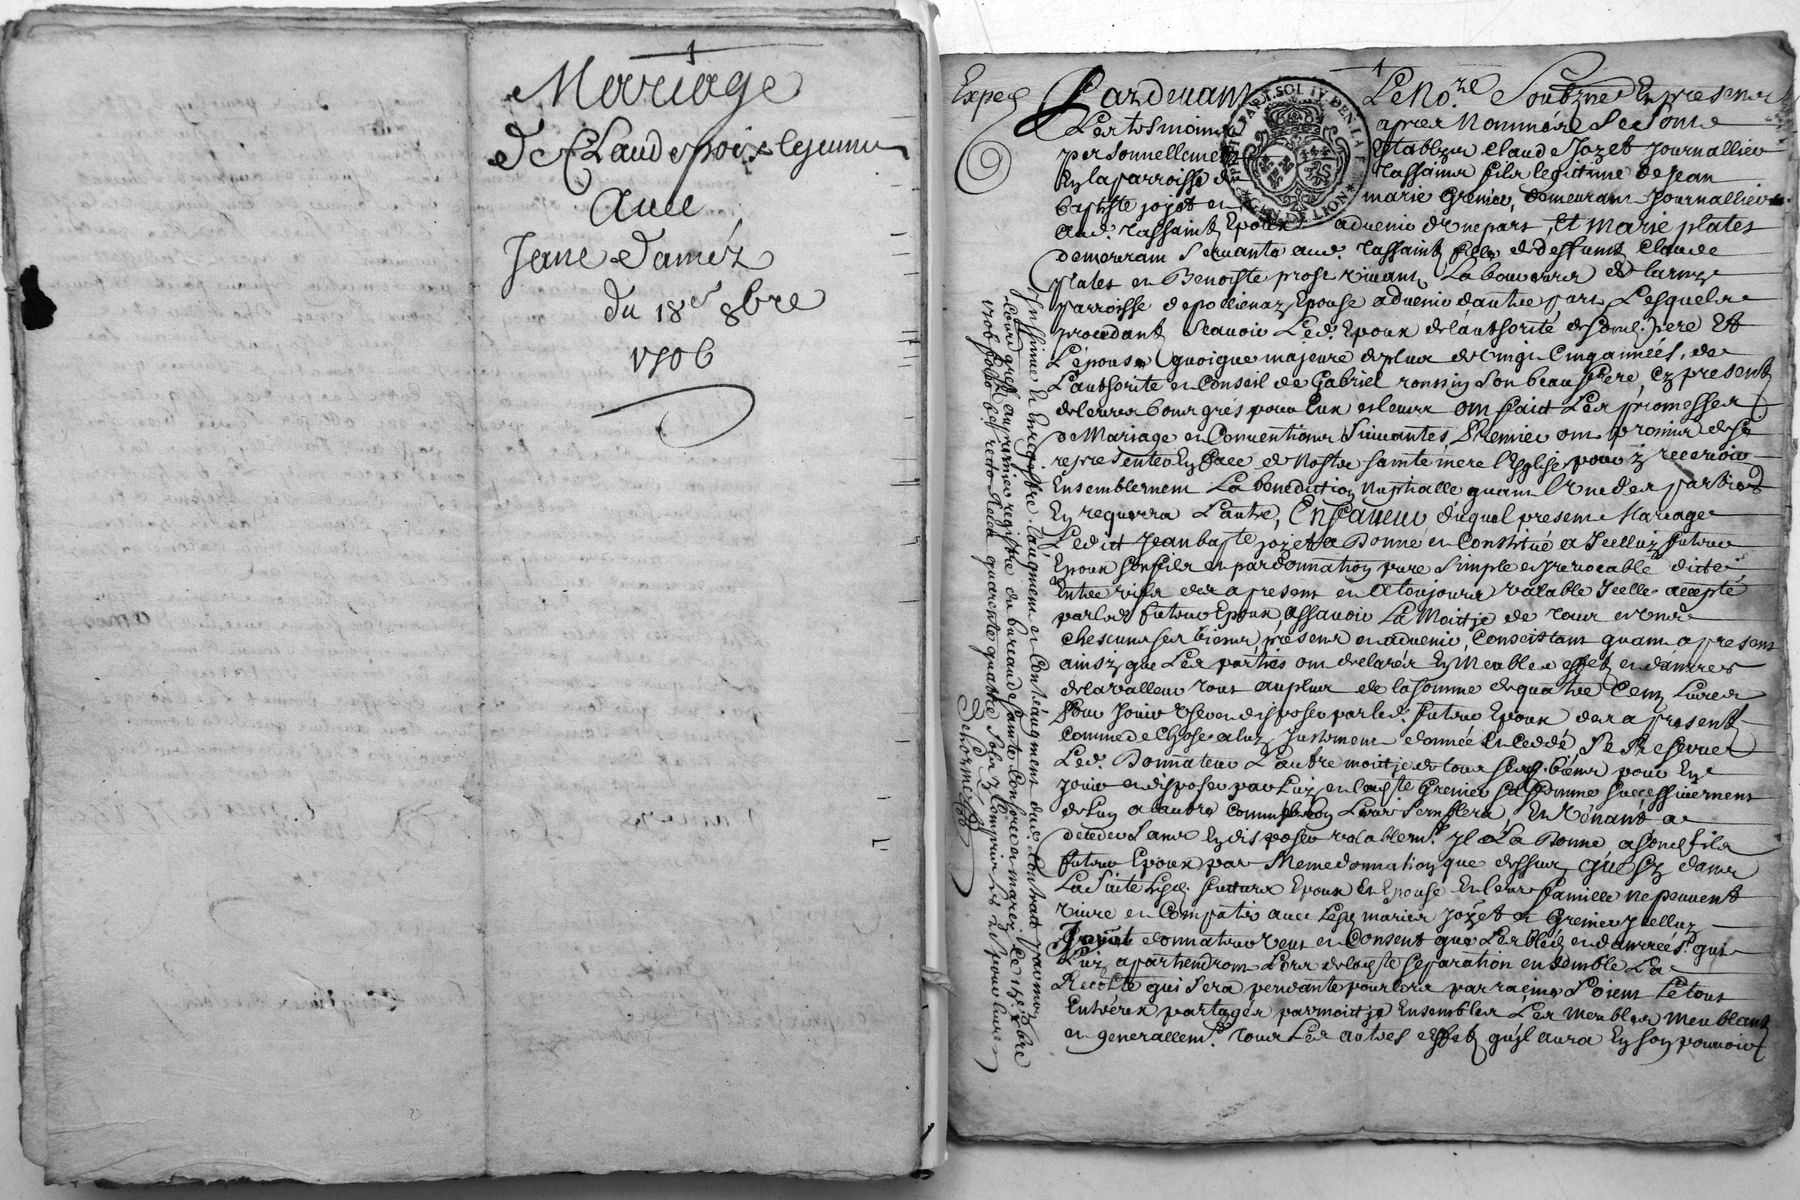 Mariage
de Claude poix le jeune
Avec
Jane Daméz
du 18e 8bre
1706
Exped
Pardevant Le No.re Soubzné En presence
Des tesmoins apres Nommés Se sont
personnellement Establis Claude Jozet Journallier
En la parroisse de Tassains fils legittime de Jean
baptiste jozet et marie Grenier, demeurant Journallier
aud. Tassaint Epoux advenir d'une part, Et Marie plates
demeurant Servante aud. Tassaint fille de deffunt Claude
plates et Benoiste prost vivant Laboureur de
parroisse de pollienaz Epouse advenir d'autre part Lesquels
procedant Scavoir Led. Epoux de l'authorité de sond. pere Et
L'épouse quoique majeure de plus de vingt Cinq années, de
L'authorité et Conseil de Gabriel ronssin Son beau frere, Cy present
de leurs bons grés pour Eux et leurs ont fait Les promesses
de Mariage et Conventions Suivantes Premier ont promis de se
representer En face de Nostre sainte mere l'Eglise pour y recevoir
Ensemblement La benediction Nuptialle quant l'un des parties
En requerra L'autre, En faveur duquel present Mariage
Ledict Jean bapte jozet a Donné et Constitué a Icelluy futur
Epoux son fils et par donnation pure Simple et Irrevocable dicte
Entre vifs des a present et a toujours valable Icelle accepté
par led. futur Epoux assavoir La Moitié de tous et uns
chescuns ses biens, presens et advenir, Consistant quant a present
ainsy que Les parties ont declarés En Meubles effets et danrées
de la valleur tous au plus de la somme de quatre Cents Livres
Pour Jouir User en disposer par led. futur Epoux des a present
Comme de Chose a luy Justement donnée En Cedde Se Reserve
Led. Donnateur L'autre moitié de tous sesd. biens pour En
jouir et disposer par Luy et lad. Grenier sa femme successivement
de lun a lautre Comme bon Leurs Semblera, En Venant a
deceder Sans En disposer valablemt. Il La Donne a sond. fils
futur Epoux par Meme donnation que dessus, que Sy dans
La Suite Lesd. futturs Epoux En Epouse En leur famille ne peuvent
vivre et Compatir avec Lesd. mariés jozet et Grenier Icelluy
Jozet donnateur veut et Consent que Les bleds et danrrées qui
Luy apartiendront Lors de lad. separation ensemble La
Recolte qui sera pendante pour lors par racines Soient Le tout
Entr'eux partagés par moitié Ensemble Les Meubles Meublants
et generallemt. tous Les autres effets qu'il aura En son pouvoir
Insinué et Enregistré l'augment et Contréaugment dud. Contract par moy
au premier registre du bureau de sainte Consorce et marcy Ce 18e 8bre
1706 folio 66 recto Receu quarente quatre Sols y Compris Les 2s pour livre
Dehormé